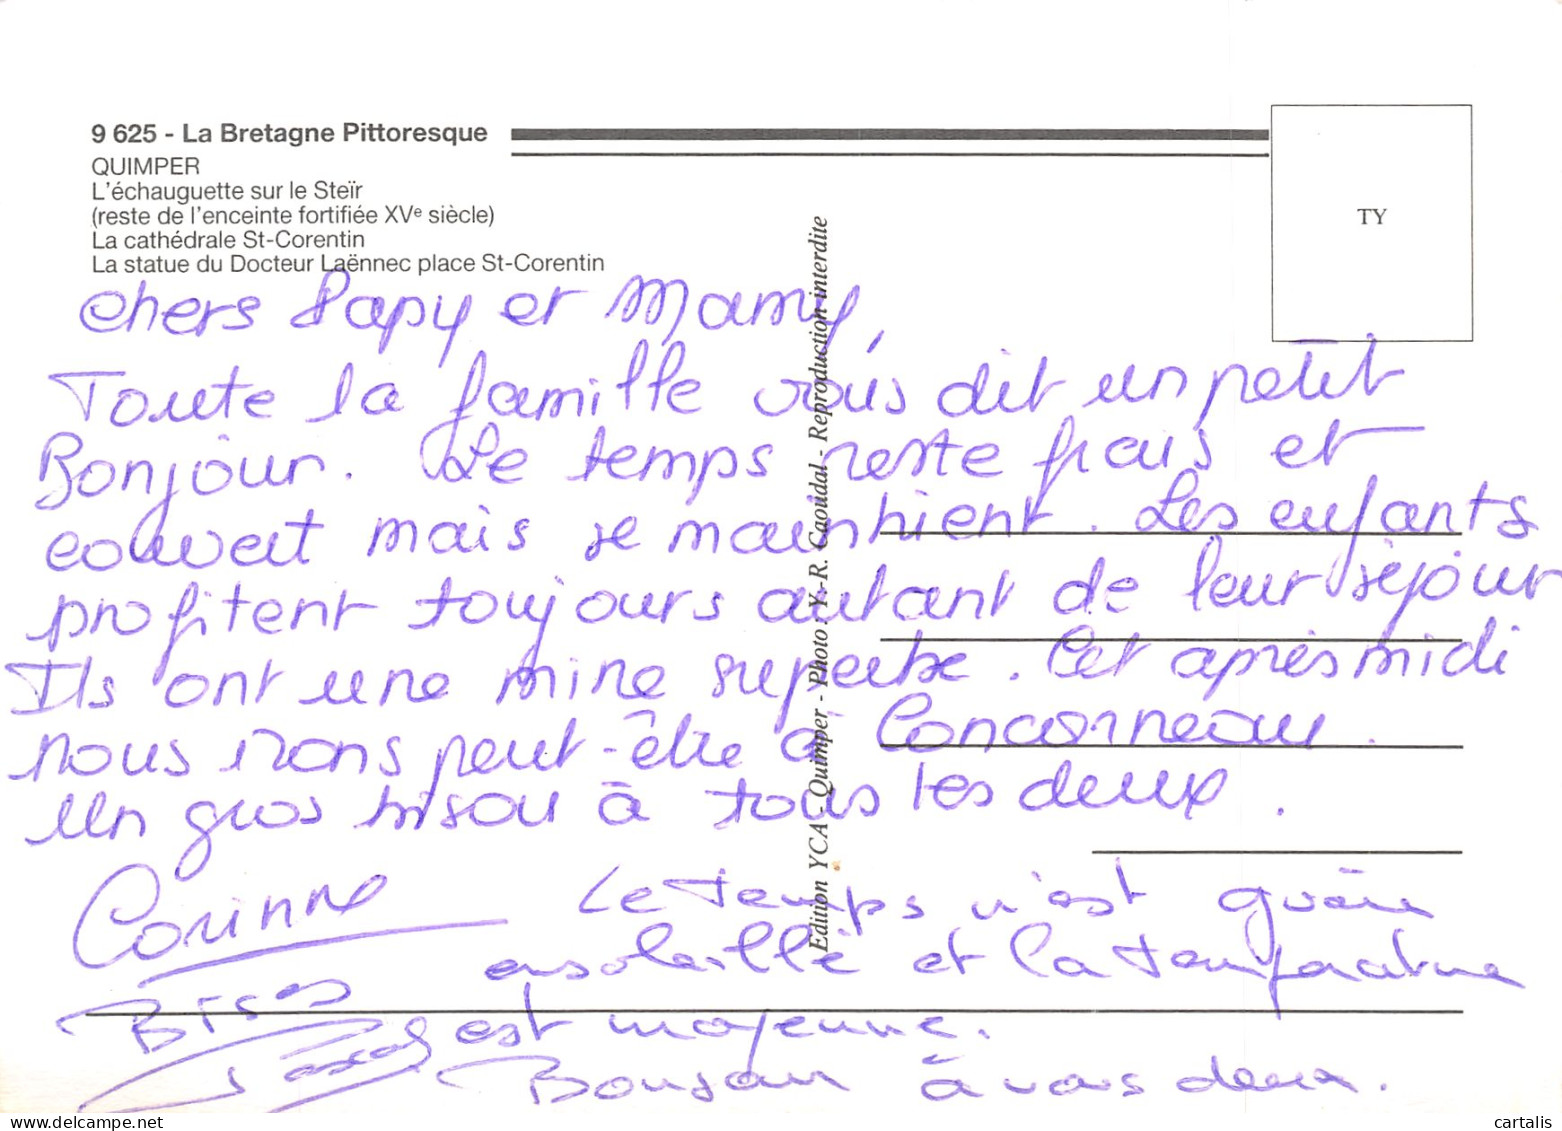 9 625 - La Bretagne Pittoresque
QUIMPER
L'échauguette sur le Steïr
(reste de l'enceinte fortifiée XVe siècle)
La cathédrale St-Corentin
La statue du Docteur Laënnec place St-Corentin
TY
Edition YCA - Quimper - Photo : Y.-R. Caoudal - Reproduction interdite
chers Papy et Mamy,
Toute la famille vous dit un petit
Bonjour. Le temps reste frais et
couvert mais se maintient. Les enfants
profitent toujours autant de leur séjour
Ils ont une mine superbe. Cet après midi
nous irons peut-être à Concarneau.
Un gros bisou à tous les deux.
Corinne
Le temps n'est guère
ensoleillé et la température
est moyenne.
Bises
Pascal
Bonjour à vous deux.
delcampe.net
cartalis